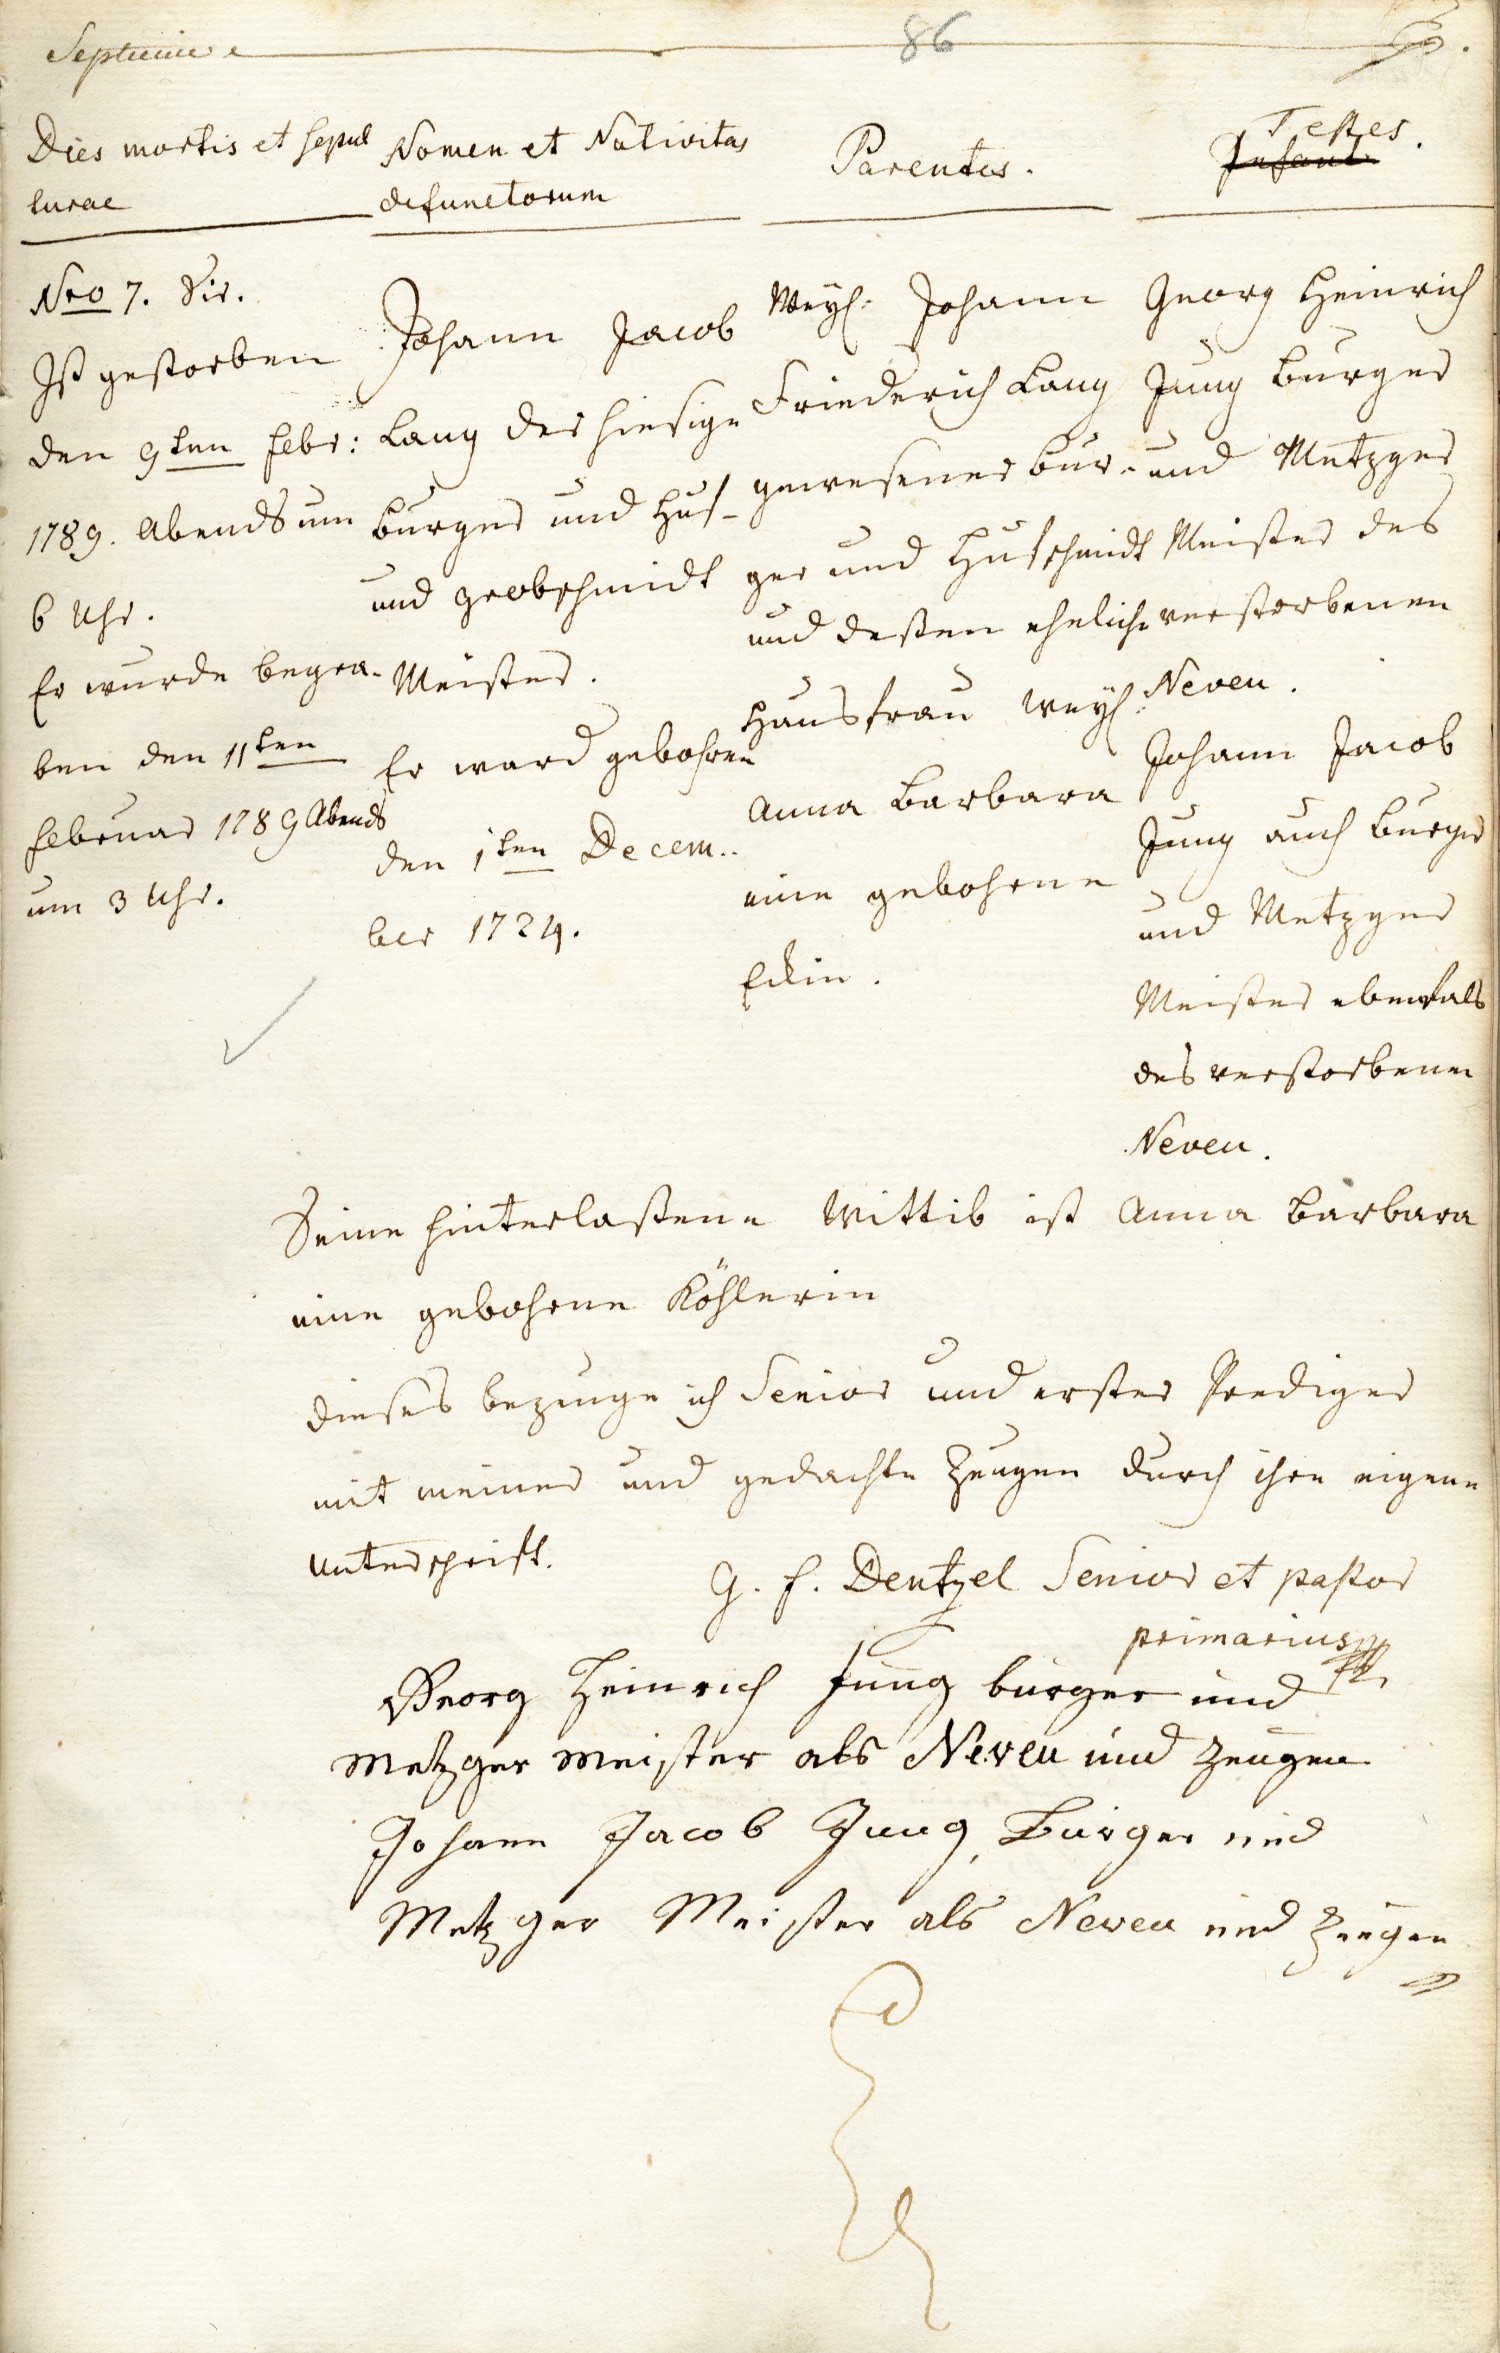 Septieme
86
Dies mortis et sepul
turae
Nomen et Nativitas
defunctorum
Parentes.
Testes.
Infant
Nro 7. Vir.
Ist gestorben
den 9ten Febr:
1789. Abends um
6 Uhr.
Er wurde begra-
ben den 11ten
Februar 1789 Abends
um 3 Uhr.
Johann Jacob
Lang der hiesige
Burger und Huf-
und Grobschmidt
Meister.
Er ward gebohren
den 1ten Decem..
ber 1724.
Weyl: Johann
Friederich Lang
gewesener Bur-
ger und Hufschmidt
und deßen ehliche
Hausfrau Weyl:
Anna Barbara
eine gebohrne
Eckin.
Georg Heinrich
Jung Burger
und Metzger
Meister des
verstorbenen
Neveu.
Johann Jacob
Jung auch Burger
und Metzger
Meister ebenfals
des verstorbenen
Neveu.
Seine hinterlaßene Wittib ist Anna Barbara
eine gebohrne Köhlerin
dieses bezeuge ich Senior und erster Prediger
mit meiner und gedachte Zeugen durch ihre eigene
Unterschrift.
G. F. Dentzel Senior et pastor
primarius
Georg Heinrich Jung burger und
Metzger Meister als Neveu und Zeugen
Johann Jacob Jung, Burger und
Metzger Meister als Neveu und Zeugen